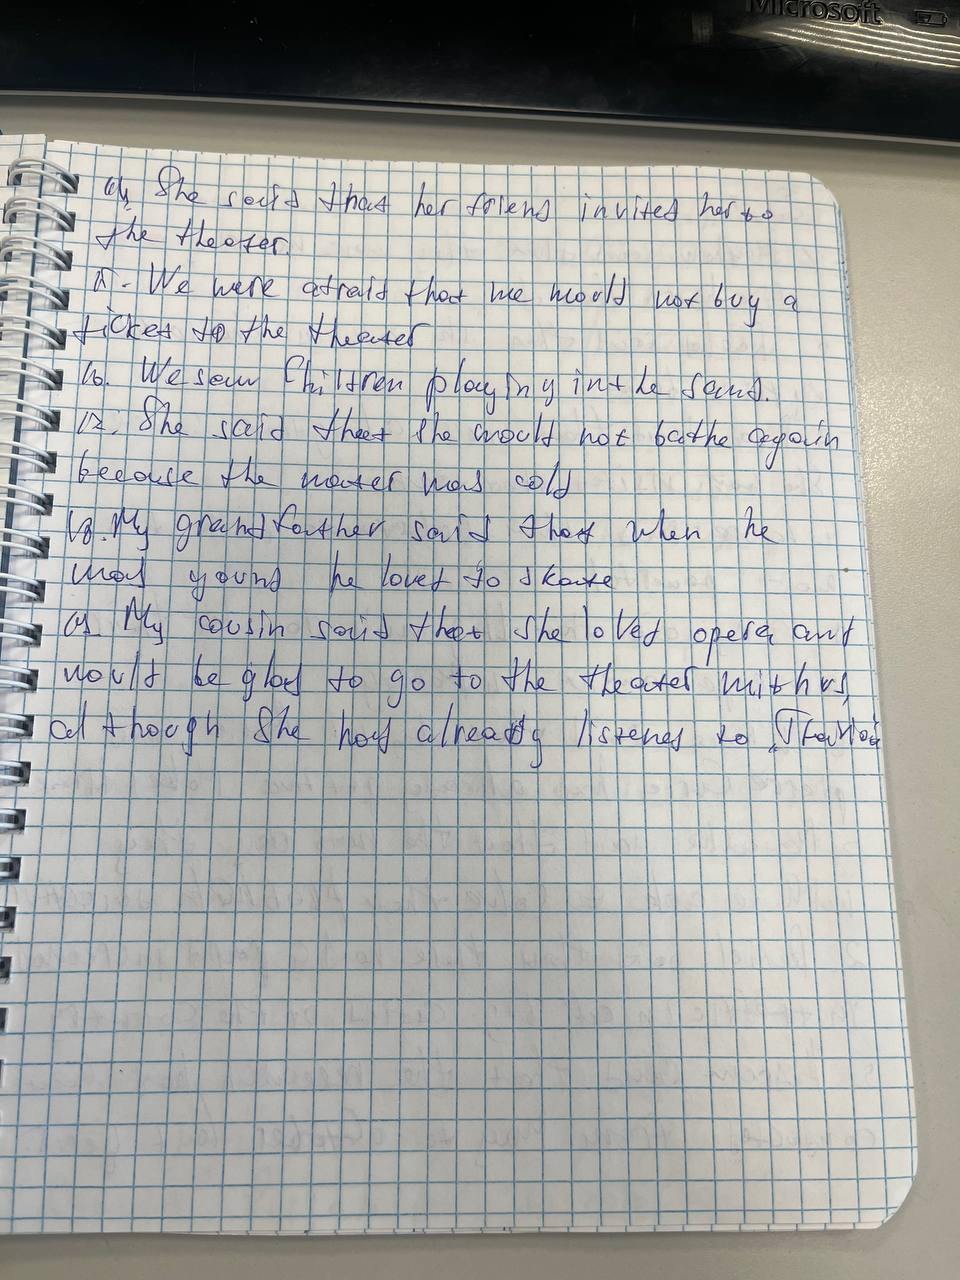 Microsoft
14. She said that her friend invited her to
the theater.
15. We were afraid that we would not buy a
ticket to the theater
16. We saw Children playing in the sand.
17. She said that she would not bathe again
because the water was cold
18. My grandfather said that when he
was young he loved to skate
19. My cousin said that she loved opera and
would be glad to go to the theater with us,
although she had already listened to